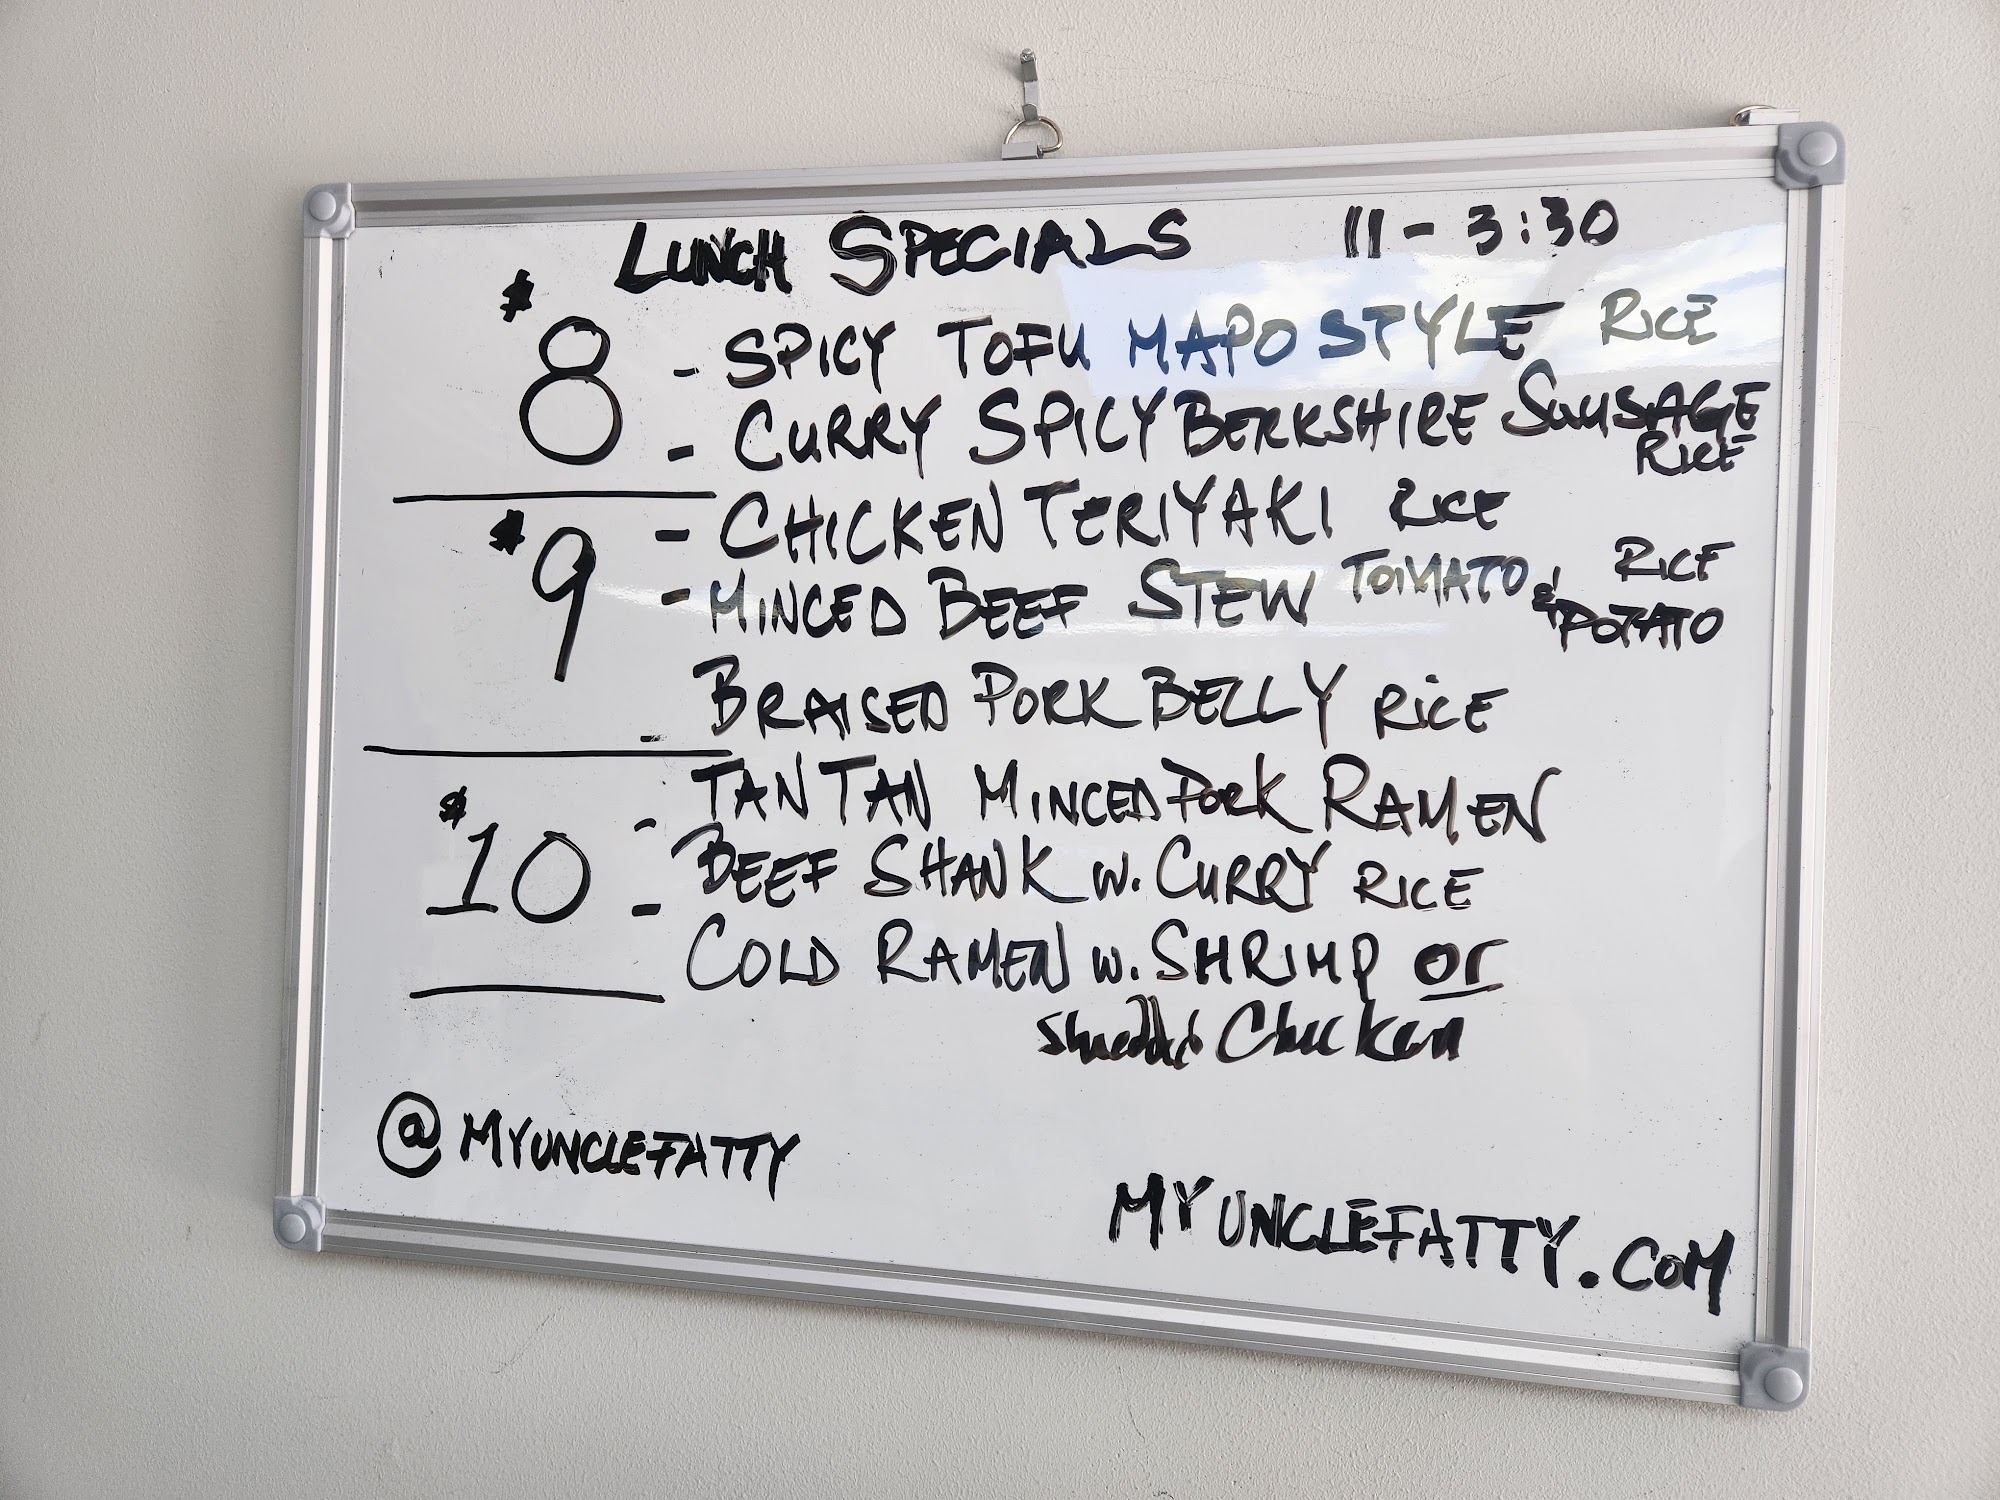 LUNCH SPECIALS 11 - 3:30
$8 - SPICY TOFU MAPO STYLE RICE
- CURRY SPICY BERKSHIRE SAUSAGE
RICE
$9 - CHICKEN TERIYAKI RICE
- MINCED BEEF STEW TOMATO & POTATO RICE
- BRAISED PORK BELLY RICE
$10 - TAN TAN MINCED PORK RAMEN
- BEEF SHANK W. CURRY RICE
COLD RAMEN W. SHRIMP or
Shredded Chicken
@MYUNCLEFATTY
MYUNCLEFATTY.COM